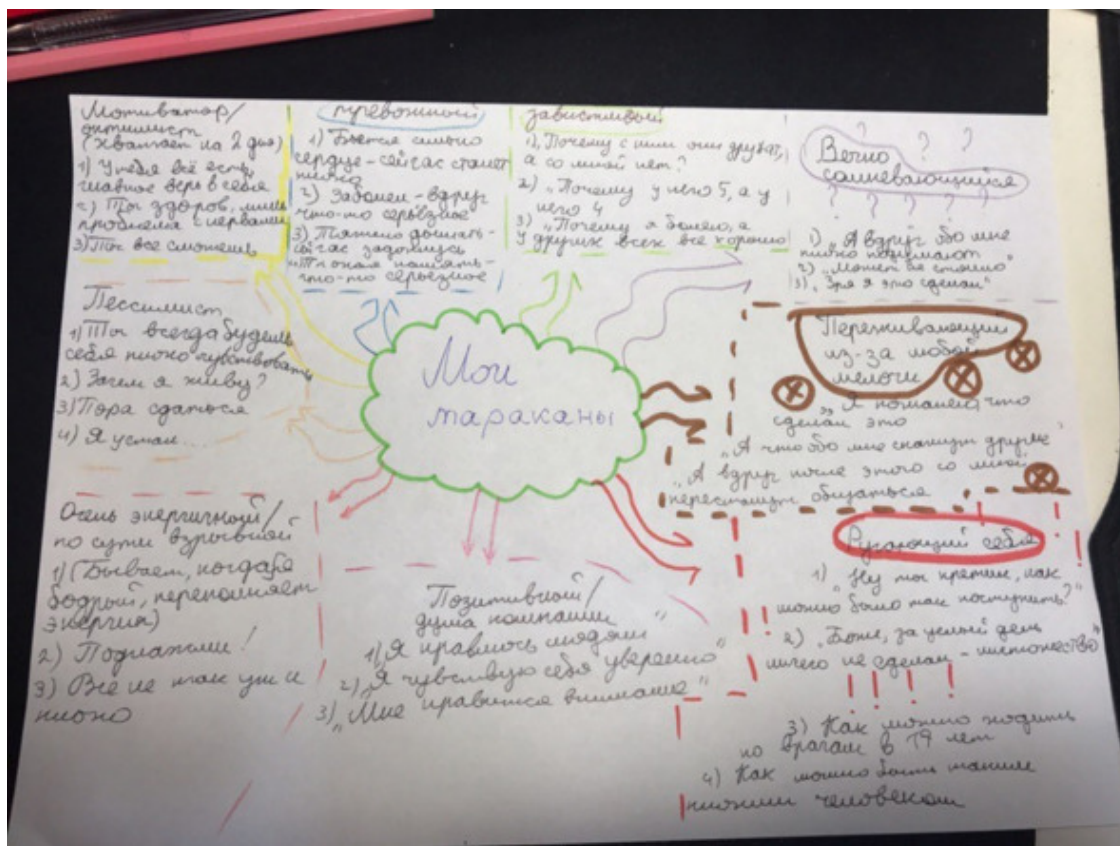 Мотиватор/
оптимист
(хватает на 2 дня)
1) У тебя всё есть,
главное верь в себя
2) Ты здоров, лишь
проблема с нервами
3) Ты все сможешь
тревожный
1) Бьется сильно
сердце - сейчас станет
плохо
2) Заболел - вдруг
что-то серьёзное
3) Тяжело дышать -
сейчас задохнусь
Плохая память -
что-то серьезное
завистливый
1) „Почему с ним они дружат,
а со мной нет?
2) „Почему у него 5, а у
него 4
3) „Почему я болею, а
у других всех все хорошо
? ? ?
Вечно
сомневающийся
? ? ? ? ?
1) „А вдруг обо мне
плохо подумают
2) „Может не стоило"
3) „Зря я это сделал"
Пессимист
1) Ты всегда будешь
себя плохо чувствовать
2) Зачем я живу?
3) Пора сдаться
4) Я устал...
Мои
тараканы
Переживающий
из-за любой
мелочи
„Я пожалел, что
сделал это
„А что обо мне скажут другие"
„А вдруг после этого со мной
перестанут общаться
Очень энергичный/
по сути взрывной
1) (Бывает, когда я
бодрый, переполняет
энергия)
2) Поднажми!
3) Все не так уж и
плохо
Позитивный/
душа компании
1) „Я нравлюсь людям"
2) „Я чувствую себя уверенно"
3) „Мне нравится внимание"
Ругающий себя
1) „Ну ты кретин, как
можно было так поступить?"
2) „Боже, за целый день
ничего не сделал - ничтожество"
! ! ! !
3) Как можно ходить
по врачам в 19 лет
4) Как можно быть таким
плохим человеком